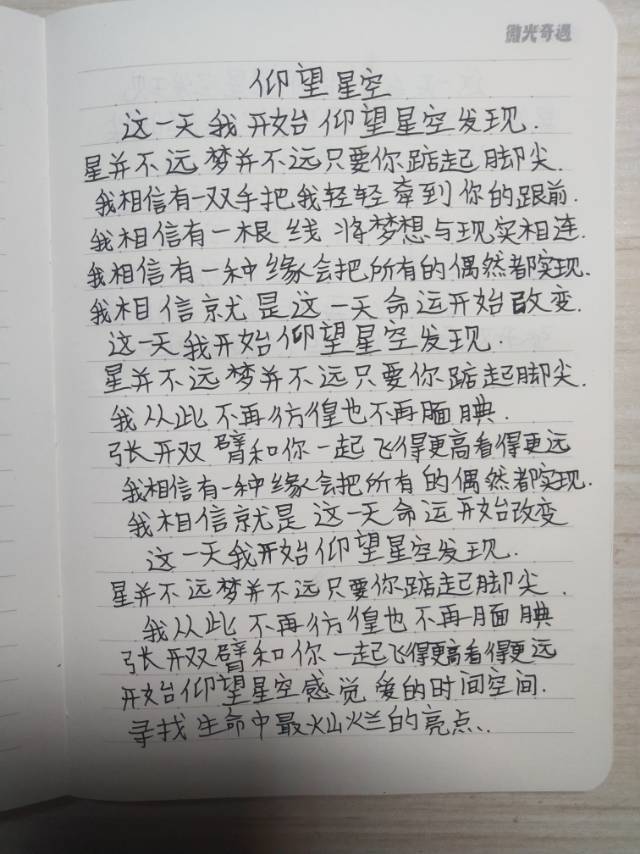 微光奇遇
仰望星空
这一天我开始仰望星空发现.
星并不远梦并不远只要你踮起脚尖.
我相信有一双手把我轻轻牵到你的跟前.
我相信有一根线将梦想与现实相连.
我相信有一种缘会把所有的偶然都实现.
我相信就是这一天命运开始改变.
这一天我开始仰望星空发现.
星并不远梦并不远只要你踮起脚尖.
我从此不再彷徨也不再腼腆.
张开双臂和你一起飞得更高看得更远
我相信有一种缘会把所有的偶然都实现.
我相信就是这一天命运开始改变
这一天我开始仰望星空发现.
星并不远梦并不远只要你踮起脚尖.
我从此不再彷徨也不再腼腆
张开双臂和你一起飞得更高看得更远
开始仰望星空感觉爱的时间空间.
寻找生命中最灿烂的亮点.